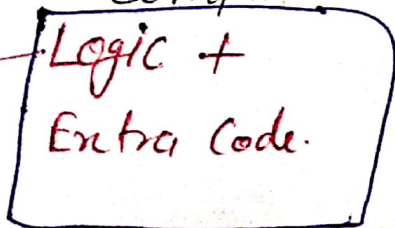 Logic +
Extra Code.